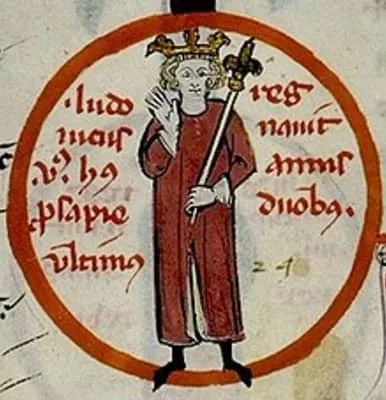 .ludo
uicus
.vꝰ. hꝯ
ꝓsapie
vltimꝰ
reg
nauit
annis
duobꝫ.